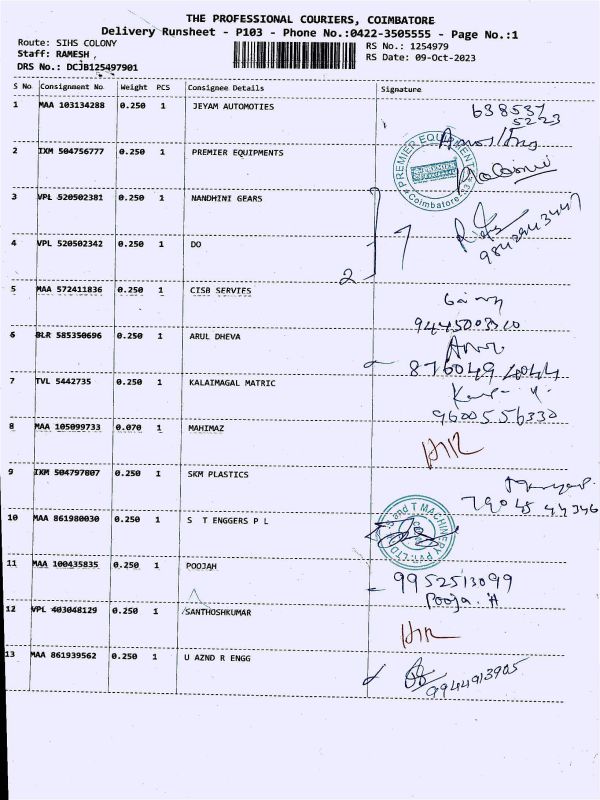 THE PROFESSIONAL COURIERS, COIMBATORE
Delivery Runsheet - P103 - Phone No.:0422-3505555 - Page No.:1
Route: SIHS COLONY
Staff: RAMESH ,
DRS No.: DCJB125497901
RS No.: 1254979
RS Date: 09-Oct-2023
S No Consignment No Weight PCS Consignee Details Signature
1 MAA 103134288 0.250 1 JEYAM AUTOMOTIES
638537
5223
2 IXM 504756777 0.250 1 PREMIER EQUIPMENTS
PREMIER EQUIPMENTS
Coimbatore
3 VPL 520502381 0.250 1 NANDHINI GEARS
4 VPL 520502342 0.250 1 DO
2
5 MAA 572411836 0.250 1 CISB SERVIES
6 BLR 585350696 0.250 1 ARUL DHEVA
7 TVL 5442735 0.250 1 KALAIMAGAL MATRIC
9600556330
8 MAA 105099733 0.070 1 MAHIMAZ
9 IXM 504797807 0.250 1 SKM PLASTICS
79045 44346
10 MAA 861980030 0.250 1 S T ENGGERS P L
S and T MACHINERY PVT. LTD
11 MAA 100435835 0.250 1 POOJAH
9952513099
Pooja. H
12 VPL 403048129 0.250 1 SANTHOSHKUMAR
13 MAA 861939562 0.250 1 U AZND R ENGG
9944913905